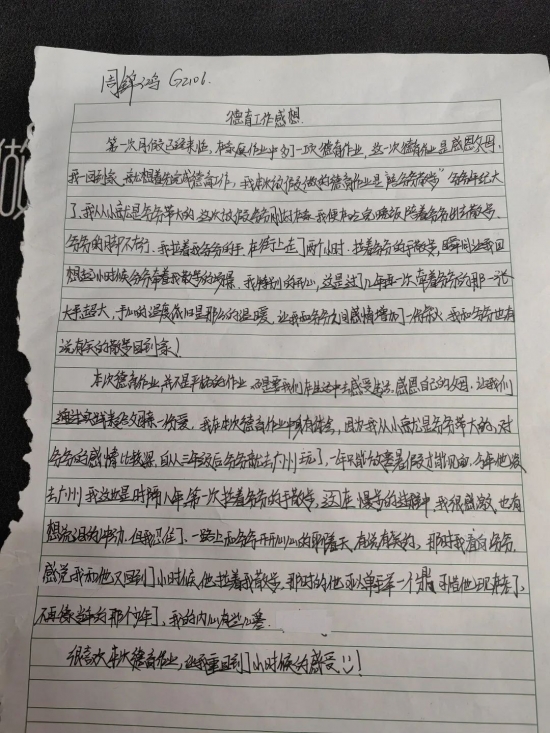 周锦鸿 G2106.
德育工作感想
第一次月假已经来临,在家庭作业中多了一项德育作业,这一次德育作业是感恩父母.
我一回到家,就想着先完成德育工作,我本次放假做的德育作业是“陪爷爷散步”爷爷年纪大
了,我从小就是爷爷带大的,这次放假爷爷刚好在家我便在吃完晚饭陪着爷爷出去散步,
爷爷的脚不太行,我拉着我爷爷的手,在街上走了两个小时.拉着爷爷的手散步,瞬间让我回
想起小时候爷爷牵着我散步的场景,我特别的开心,这是过了八年再一次牵着爷爷的那一张
大手,超大,手心的温度依旧是那么的温暖,让我和爷爷之间感情增加了一份,我和爷爷也有
说有笑的散步回到家!
本次德育作业,并不是平常的作业,而是要我们在生活中去感受生活,感恩自己的父母,让我们
通过实践来给父母一份爱,我在本次德育作业中身有体会,因为我从小就是爷爷带大的,对
爷爷的感情比较深,自从三年级后爷爷就去广州玩了,一年只能放寒暑假才能见面,今年他没
去广州我这也是时隔八年第一次拉着爷爷的手散步,这在慢步的过程中,我很感激,也有
想流泪的冲动,但我忍住了,一路上和爷爷开开心心的聊着天,有说有笑的,那时我看向爷爷,
感觉我和他又回到了小时候他拉着我散步,那时的他可以单手举一个鼎,可惜他现老了,
不再像当年的那个少年了,我的内心有些心塞.
很喜欢本次德育作业,让我重回到了小时候的感受!